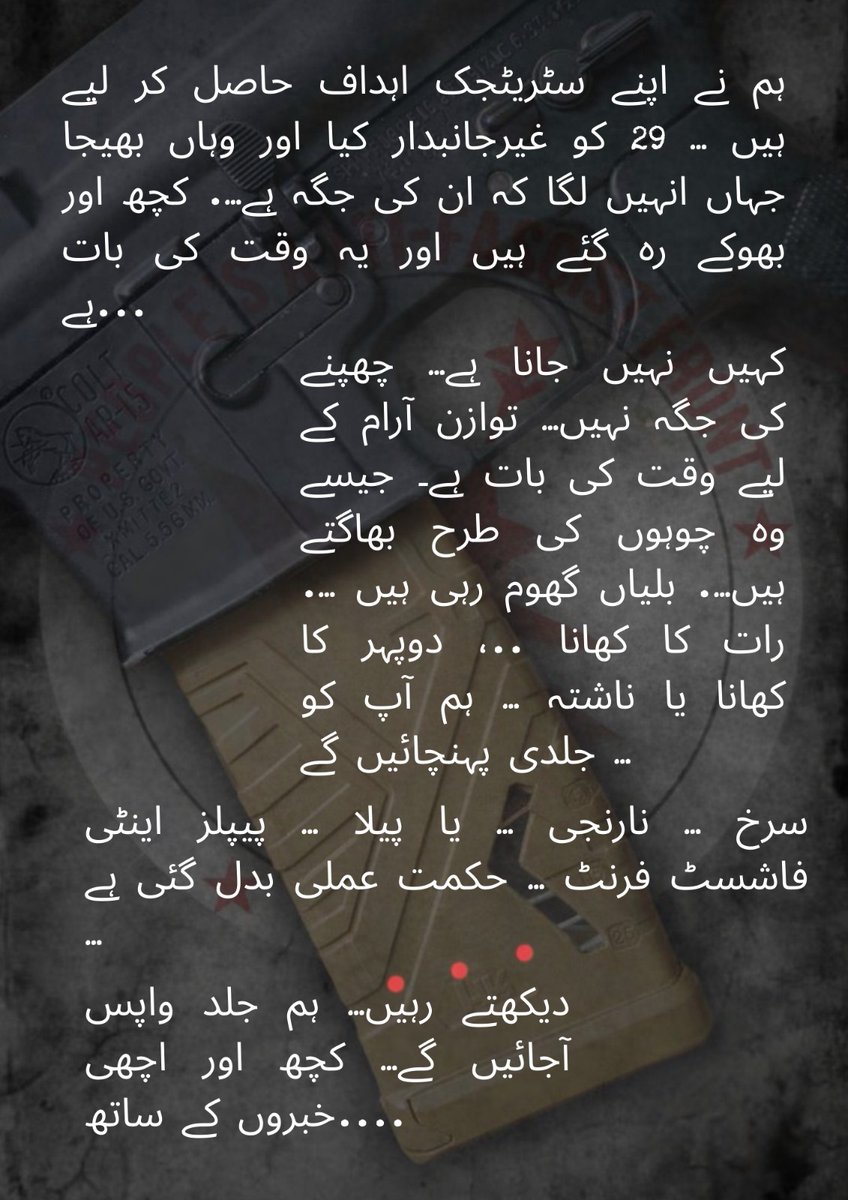 ہم نے اپنے سٹریٹجک اہداف حاصل کر لیے
ہیں ... 29 کو غیرجانبدار کیا اور وہاں بھیجا
جہاں انہیں لگا کہ ان کی جگہ ہے.... کچھ اور
بھوکے رہ گئے ہیں اور یہ وقت کی بات
ہے...
کہیں نہیں جانا ہے... چھپنے
کی جگہ نہیں... توازن آرام کے
لیے وقت کی بات ہے۔ جیسے
وہ چوہوں کی طرح بھاگتے
ہیں.... بلیاں گھوم رہی ہیں ....
رات کا کھانا ..، دوپہر کا
کھانا یا ناشتہ ... ہم آپ کو
جلدی پہنچائیں گے ...
سرخ ... نارنجی ... یا پیلا ... پیپلز اینٹی
فاشسٹ فرنٹ ... حکمت عملی بدل گئی ہے
...
دیکھتے رہیں... ہم جلد واپس
آجائیں گے... کچھ اور اچھی
خبروں کے ساتھ....
PEOPLE'S ANTI-FASCIST FRONT
COLT
AR-15
PROPERTY
OF U.S. GOVT.
XM177E2
CAL. 5.56MM